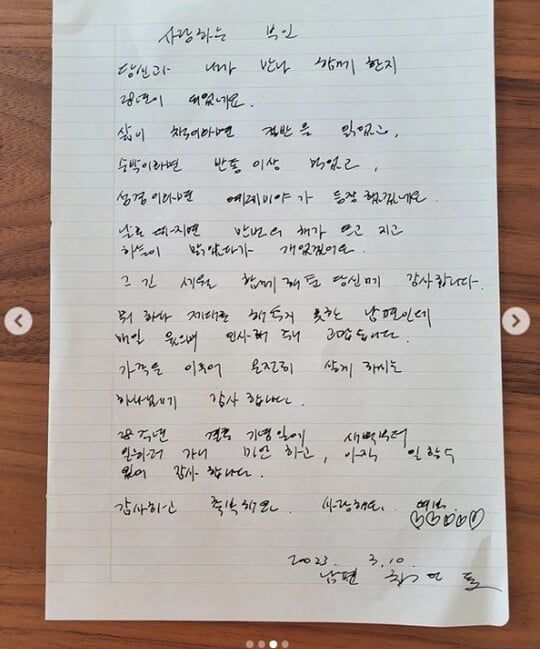 사랑하는 부인
당신과 내가 만나 함께 한지
28년이 되었네요.
삶이 책이라면 절반을 읽었고,
수박이라면 반통이상 먹었고,
성경이라면 예레미야가 등장했겠네요.
날로 따지면 만번의 해가 뜨고 지고
하늘이 맑았다가 개었겠어요.
그 긴 세월 함께 해 준 당신께 감사합니다.
뭐 하나 제대로 해주지 못하는 남편인데
매일 웃으며 인사해 줘 고맙습니다.
가족을 이루어 온전히 살게 하시는
하나님께 감사합니다.
28주년 결혼 기념일에 새벽부터
일하러 가니 미안하고, 아직 일할수
있어 감사합니다.
감사하고 축복해요. 사랑해요. 여보.
2023. 3.10.
남편